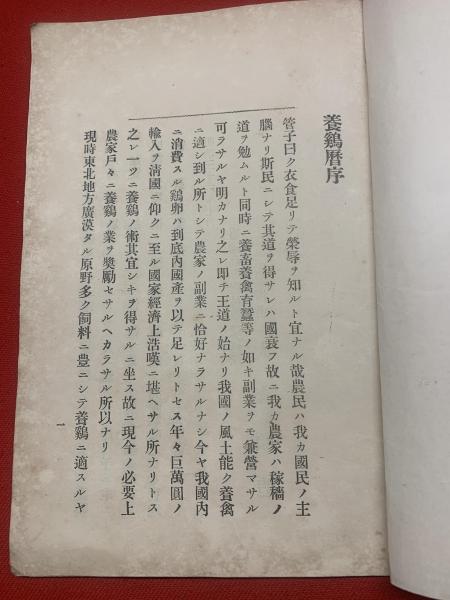 養鷄曆序
管子曰ク衣食足リテ榮辱ヲ知ルト宜ナル哉農民ハ我カ國民ノ主
腦ナリ斯民ニシテ其道ヲ得サレハ國衰フ故ニ我カ農家ハ稼穡ノ
道ヲ勉ムルト同時ニ養畜養禽育蠶等ノ如キ副業ヲモ兼營マサル
可ラサルヤ明カナリ之レ即チ王道ノ始ナリ我國ノ風土能ク養禽
ニ適シ到ル所トシテ農家ノ副業ニ恰好ナラサルナシ今ヤ我國內
ニ消費スル鷄卵ハ到底內國產ヲ以テ足レリトセス年々巨萬圓ノ
輸入ヲ淸國ニ仰クニ至ル國家經濟上浩嘆ニ堪ヘサル所ナリトス
之レ一ツニ養鷄ノ術其宜シキヲ得サルニ坐ス故ニ現今ノ必要上
農家戶々ニ養鷄ノ業ヲ奬勵セサルヘカラサル所以ナリ
現時東北地方廣漠タル原野多ク飼料ニ豊ニシテ養鷄ニ適スルヤ
一